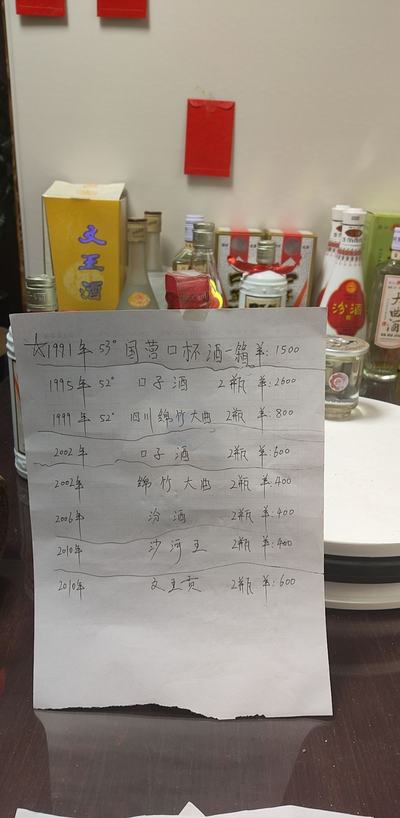 文王酒
汾酒
大曲酒
1991年 53° 国营口杯酒一箱 羊: 1500
1995年 52° 口子酒 2瓶 羊: 2600
1999年 52° 四川绵竹大曲 2瓶 羊: 800
2002年 口子酒 2瓶 羊: 600
2002年 绵竹大曲 2瓶 羊: 400
2006年 汾酒 2瓶 羊: 400
2010年 沙河王 2瓶 羊: 400
2010年 文王贡 2瓶 羊: 600